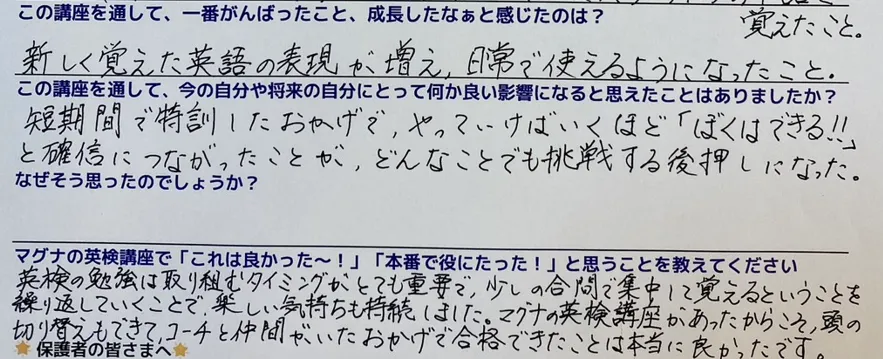 この講座を通して、一番がんばったこと、成長したなぁと感じたのは？
覚えたこと。
新しく覚えた英語の表現が増え、日常で使えるようになったこと。
この講座を通して、今の自分や将来の自分にとって何か良い影響になると思えたことはありましたか？
短期間で特訓したおかげで、やっていけばいくほど「ぼくはできる!!」
と確信につながったことが、どんなことでも挑戦する後押しになった。
なぜそう思ったのでしょうか？
マグナの英検講座で「これは良かった〜！」「本番で役にたった！」と思うことを教えてください
英検の勉強は取り組むタイミングがとても重要で、少しの合間で集中して覚えるということを
繰り返していくことで、楽しい気持ちも持続しました。マグナの英検講座があったからこそ、頭の
切り替えもできて、コーチと仲間がいたおかげで合格できたことは本当に良かったです。
保護者の皆さまへ